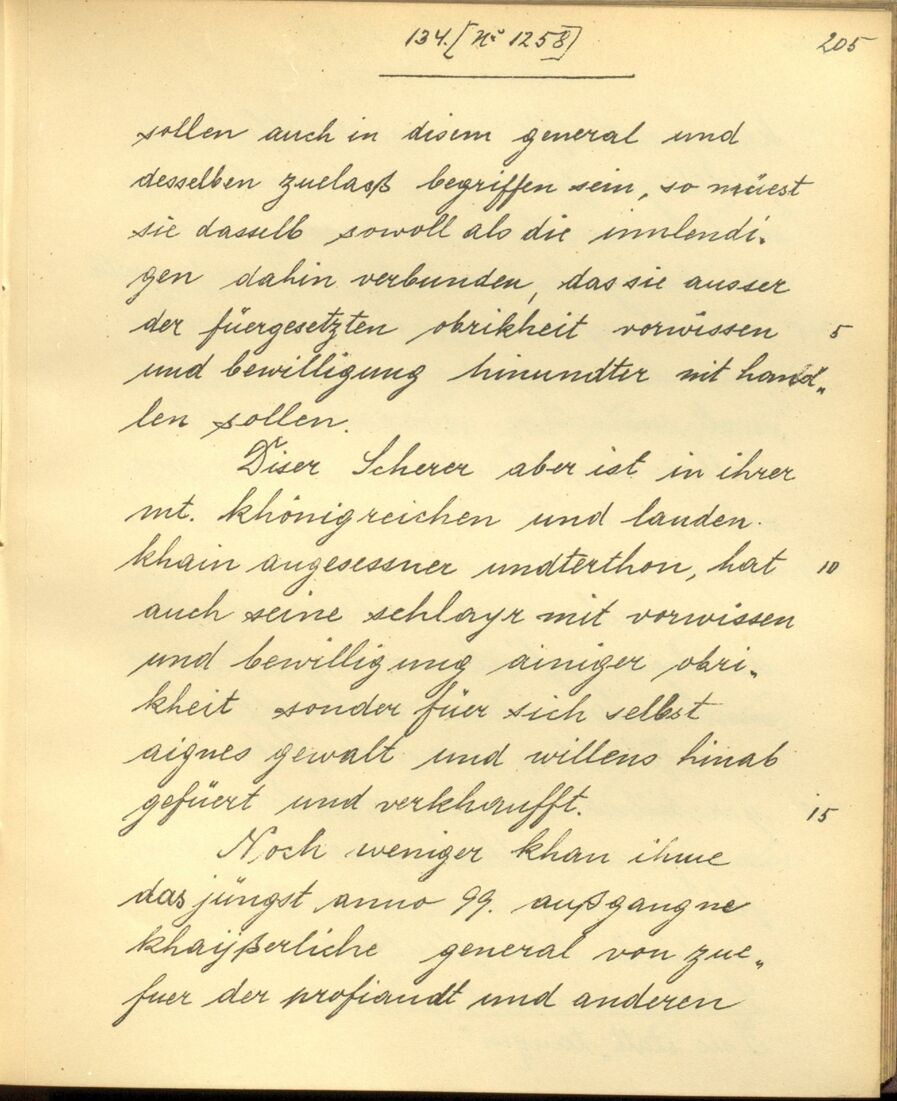 134. [Nº 1258]
205
sollen auch in disem general und
desselben zuelaß begriffen sein, so müest
sie dasselb sowoll als die innlendi-
gen dahin verbunden, das sie ausser
der füergesetzten obrikheit vorwissen 5
und bewilligung hinundter nit hand„
len sollen.
Diser Scherer aber ist in ihrer
mt. khönigreichen und landen
khain angesessner undterthon, hat 10
auch seine schlayr mit vorwissen
und bewilligung ainiger obri„
kheit sonder füer sich selbst
aignes gewalt und willens hinab
gefüert und verkhaufft. 15
Noch weniger khan ihme
das jüngst anno 99. außgangne
khaißerliche general von zue„
fuer der profiandt und anderen